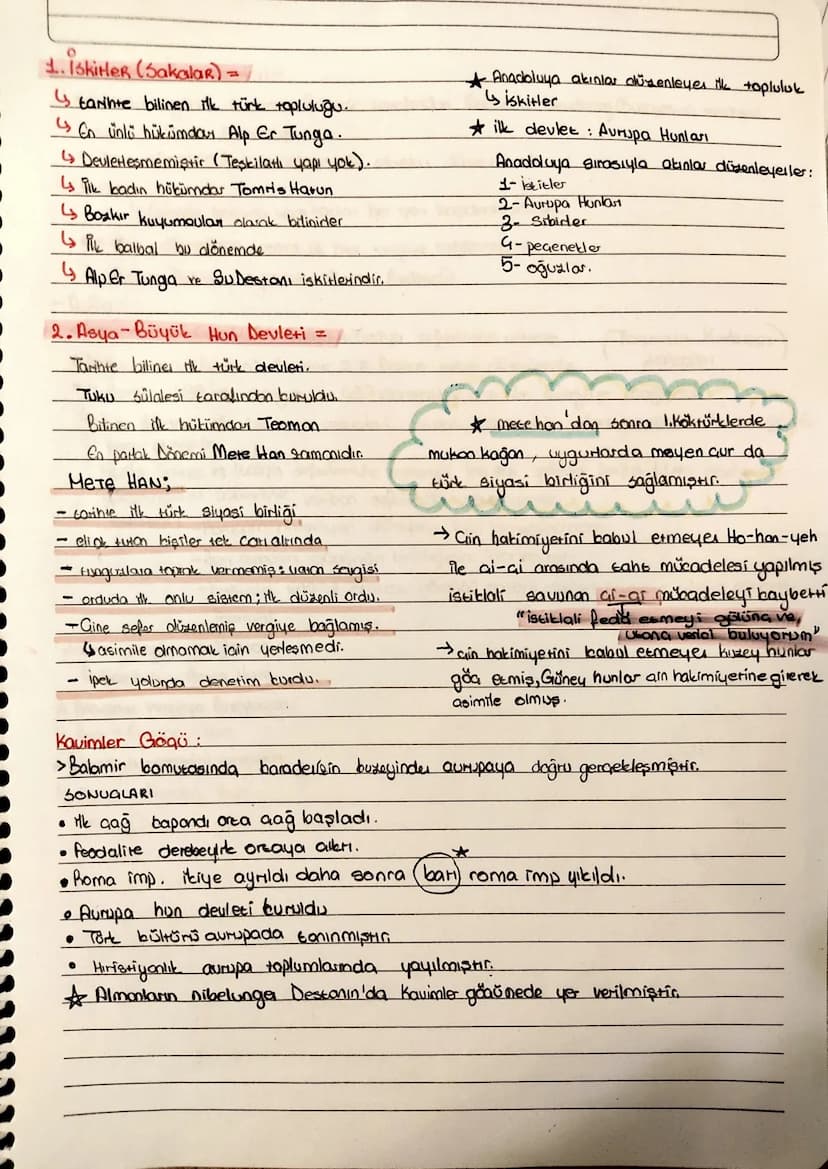 1. İskitler (Sakalar) =
↳ tarihte bilinen ilk türk topluluğu.
↳ En ünlü hükümdarı Alp Er Tunga.
↳ Devletleşmemiştir (Teşkilatlı yapı yok).
↳ İlk kadın hükümdar Tomris Hatun
↳ Bozkır kuyumcuları olarak bilinirler
↳ İlk balbal bu dönemde
↳ Alp Er Tunga ve Şu Destanı iskitlerindir.
★ Anadoluya akınlar düzenleyen ilk topluluk
↳ iskitler
★ ilk devlet : Avrupa Hunları
Anadoluya sırasıyla akınlar düzenleyenler:
1- iskitler
2- Avrupa Hunları
3- Sibirler
4- peçenekler
5- oğuzlar.
2. Asya-Büyük Hun Devleti =
Tarihte bilinen ilk türk devleti.
Tuku sülalesi tarafından kuruldu.
Bilinen ilk hükümdar Teoman
En parlak Dönemi Mete Han zamanıdır.
METE HAN;
- tarihte ilk türk siyasi birliği
- eli ok tutan kişiler tek çatı altında
- tunguzlara toprak vermemiş: vatan sevgisi
- orduda ilk onlu sistem; ilk düzenli ordu.
- Çine sefer düzenlemiş vergiye bağlamış.
↳ asimile olmamak için yerleşmedi.
- ipek yolunda denetim kurdu.
★ mete han'dan sonra 1.Köktürklerde
mukan kağan, uygurlarda moyen çur da
türk siyasi birliğini sağlamıştır.
→ Çin hakimiyetini kabul etmeyen Ho-han-yeh
ile çi-çi arasında taht mücadelesi yapılmış
istiklali savunan çi-çi mücadeleyi kaybetti
"istiklali feda etmeyi gülünç ve,
utanç verici buluyorum"
→ çin hakimiyetini kabul etmeyen kuzey hunlar
göç etmiş, Güney hunlar çin hakimiyetine girerek
asimile olmuş.
Kavimler Göçü :
> Balamir komutasında karadenizin kuzeyinden avrupaya doğru gerçekleşmiştir.
SONUÇLARI
• ilk çağ kapandı orta çağ başladı.
• feodalite derebeylik ortaya çıktı.
• Roma imp. ikiye ayrıldı daha sonra batı roma imp yıkıldı.
★
• Avrupa hun devleti kuruldu
• Türk kültürü avrupada tanınmıştır.
• Hıristiyanlık avrupa toplumlarında yayılmıştır.
★ Almanların nibelungen Destanın'da Kavimler göçünede yer verilmiştir.